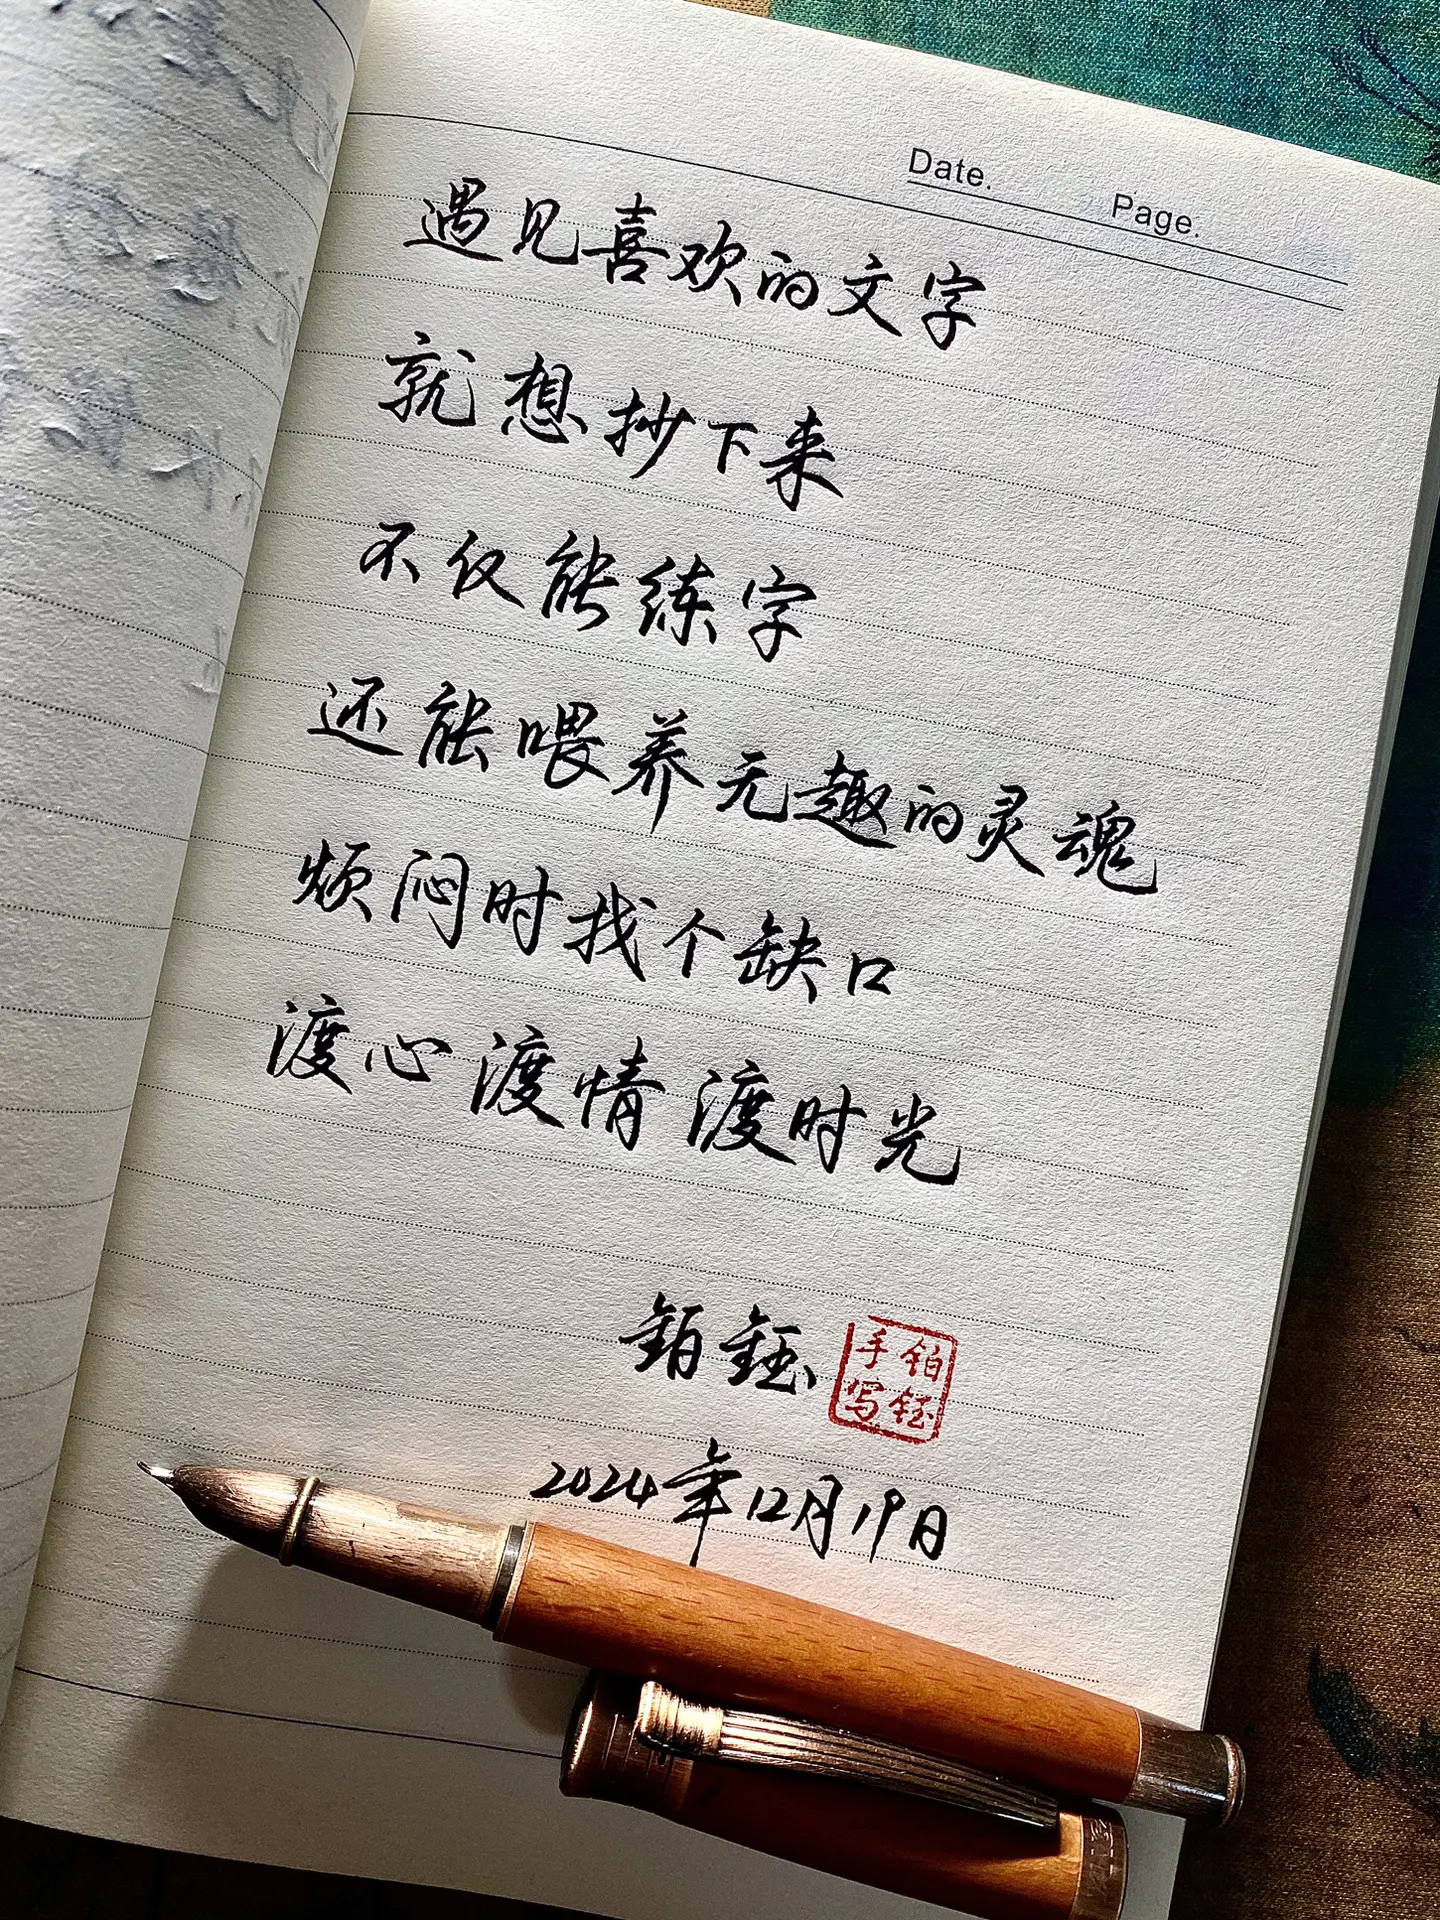 Date.
Page.
遇见喜欢的文字
就想抄下来
不仅能练字
还能喂养无趣的灵魂
烦闷时找个缺口
渡心渡情渡时光
铂钰
铂钰手写
2024年12月19日